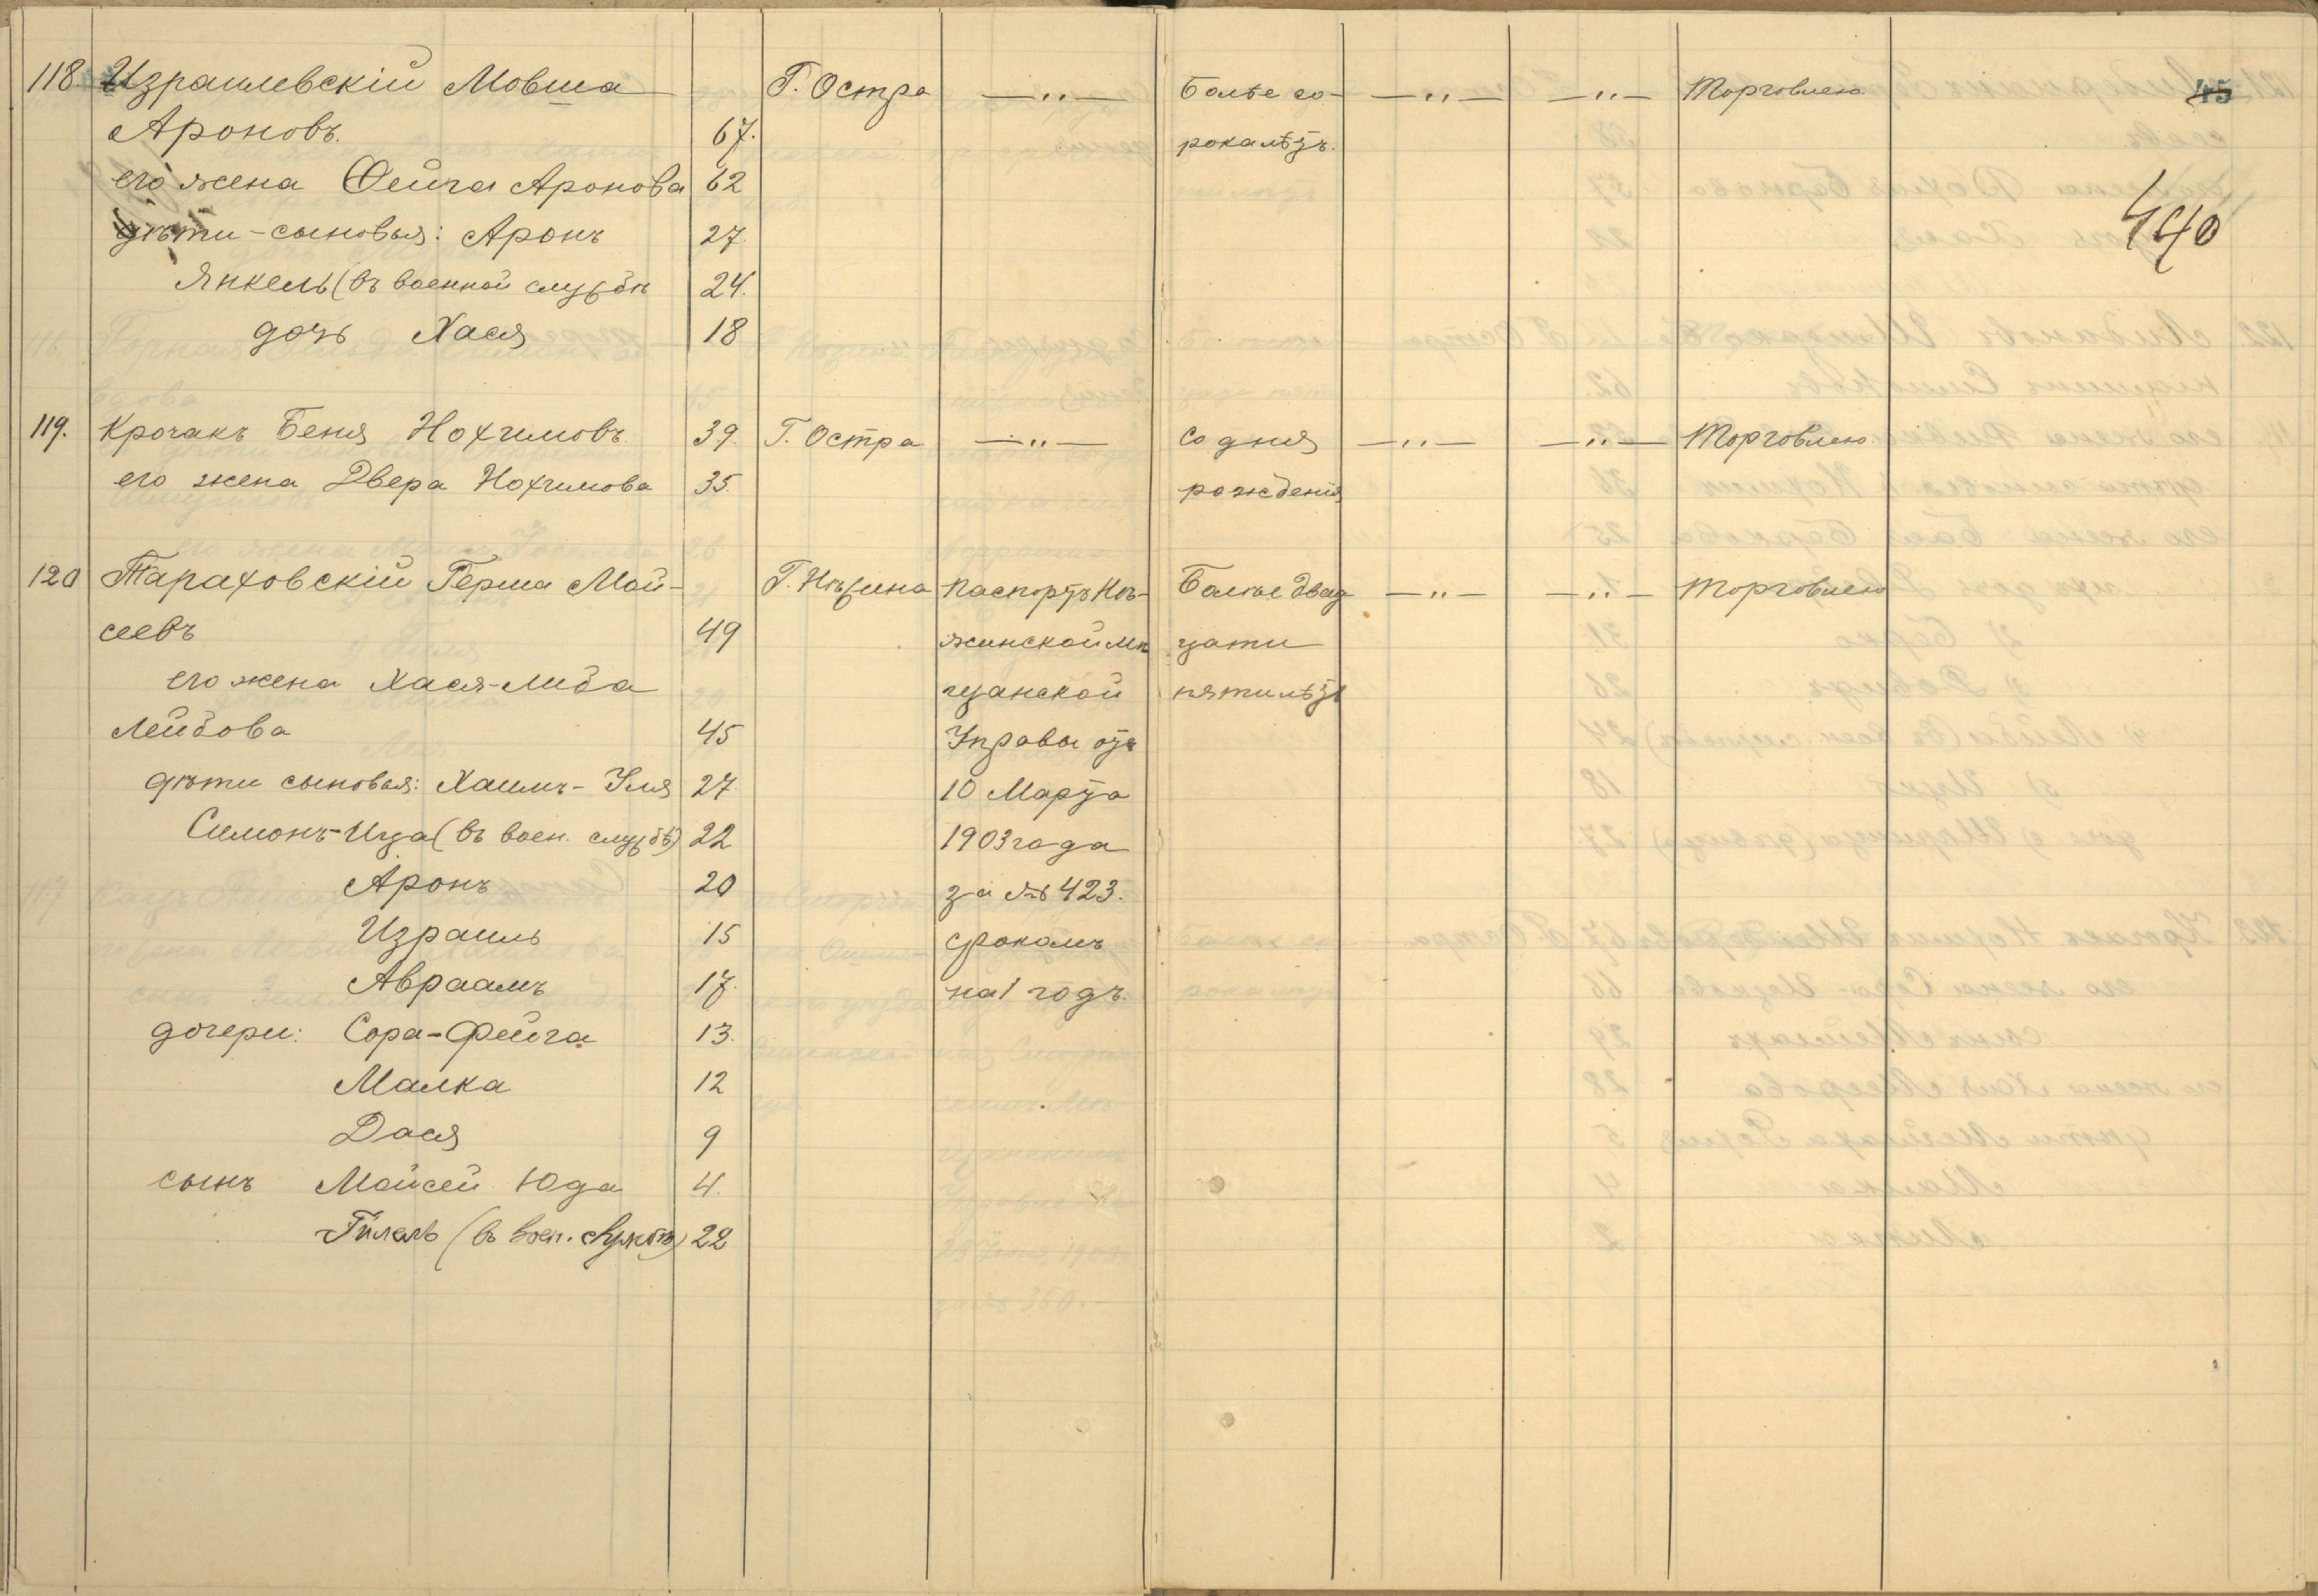 45
440
118. Израилевскій Мовша Г. Остра —„— Болѣе со- —„— —„— Торговлею
Ароновъ. 67. рокалѣтъ.
его жена Фейга Аронова 62
дѣти-сыновья: Аронъ 27.
Янкель (въ военной службѣ 24.
дочь Хася 18
119. Крочакъ Беня Нохимовъ 39 Г. Остра —„— Со дня —„— —„— Торговлею
его жена Двера Нохимова 35. рожденія
120 Тараховскій Герша Мой- Г. Нѣжина Паспортъ Нѣ- Болѣе двад —„— —„— Торговлею
сеевъ 49 жинской мѣ цати
его жена Хася-Либа щанской пятилѣтъ
Лейбова 45 Управы отъ
дѣти сыновья: Хаимъ-Уля 27. 10 Марта
Симонъ-Ица (въ воен. службѣ) 22 1903 года
Аронъ 20 за № 423.
Израиль 15 срокомъ
Авраамъ 17. на 1 годъ.
дочери: Сора-Фейга 13.
Малка 12
Дася 9
сынъ Мойсей Юда 4.
Гилель (въ воен. службѣ) 22